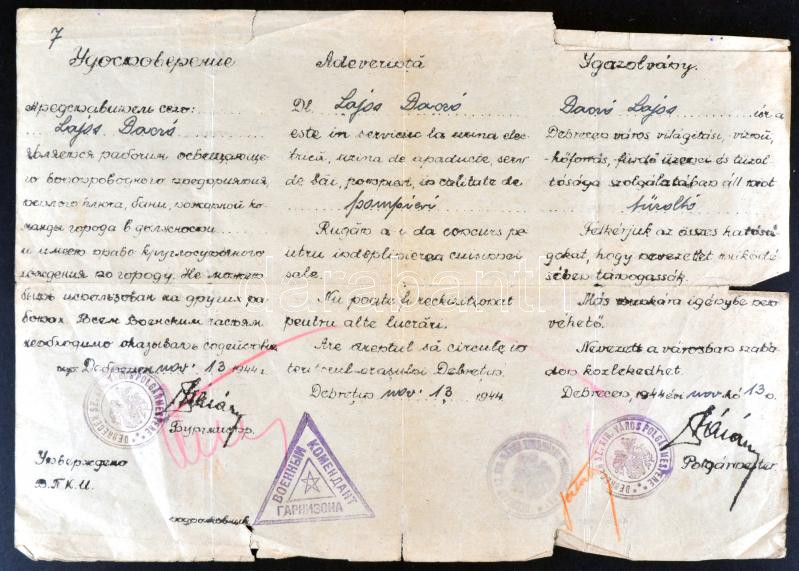 7
Удостоверение
Предъявитель сего:
Lajos Dacró
Является рабочим освещающе
го водопроводного предприятия,
бани, пожарной ко
манды города в должности
и имеет право круглосуточного
хождения по городу. Не может
быть использован на других ра
ботах. Всем Военским частям
необходимо оказывать содействие
Дебрецен nov. 13 1944 г.
Бургмистр.
Утверждено
В.П.К.И.
Adeverință
Dl. Lajos Dacró
este în serviciu la uzina elec
trică, uzina de apaducte, servi
de băi, pompieri, în calitate de
pompieri
Rugăm a i da concurs pe
ntru îndeplinirea misiunei
sale.
Nu poate fi rechiziționat
pentru alte lucrări.
Are dreptul să circule în
teritoriul orașului Debrețin.
Debrețin nov. 13. 1944
ВОЕННЫЙ КОМЕНДАНТ ГАРНИЗОНА
Igazolvány.
Dacró Lajos úr a
Debrecen város világítási, vízmű,
fürdő üzemei és tűzol
tósága szolgálatában áll mint
tűzoltó
Felkérjük az összes hatósá
gokat, hogy nevezettet működé
sében támogassák.
Más munkára igénybe nem
vehető.
Nevezett a városban szaba
don közlekedhet.
Debrecen, 1944 évi nov. hó 13 n.
Polgármester.
DEBRECEN SZ. KIR. VÁROS POLGÁRMESTERE
DEBRECEN SZ. KIR. VÁROS POLGÁRMESTERE
darabanth